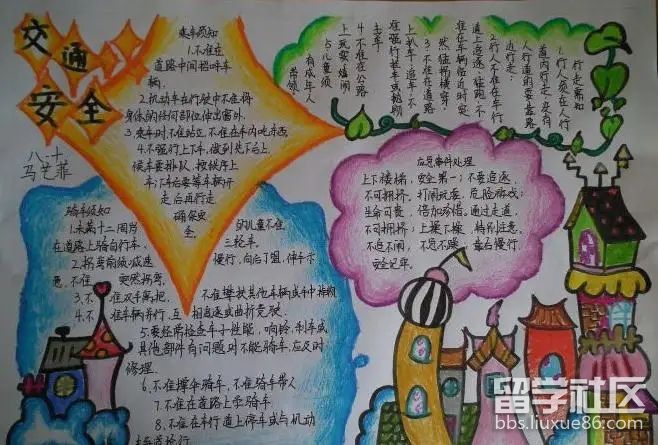 交通
安全
八、十
乘车须知
1.不准在
道路中间招呼车
辆.
2.机动车在行驶中不准将
身体的任何部位伸出窗外.
3.乘车时不准站立,不准在车内吃东西
4.不强行上下车,做到先下后上,
候车要排队,按秩序上
车;下车后要等车辆开
走后再行走
确保安
全.
行走需知
1.行人须在人行
道内行走,没有
人行道的要靠路
边行走.
2.行人不准在车行
道上追逐、猛跑,不
准在车辆临近时突
然猛拐横穿.
3.不准在道路
上扒车、追车,不
准强行拦车或抛物
击车.
4.不准在公路
上玩耍、嬉闹
5.儿童须
有成年人
带领.
应急事件处理
上下楼梯,安全第一;不要追逐,
不可拥挤,打闹玩耍,危险游戏;
生命可贵,倍加珍惜。通过走道,
不可拥挤;上操下操,特别注意,
不追不闹,不急不躁;靠右慢行,
安全记牢。
骑车须知
1.未满十二周岁的儿童不准
在道路上骑自行车、三轮车.
2.拐弯前须减速慢行,向后了望,伸手示
意,不准突然拐弯.
3.不准双手离把,不准攀扶其他车辆或手中持物
4.不准车辆并行、互相追逐或曲折竞驶.
5.要经常检查车子性能,响铃、制车或
其他部件有问题时不能骑车,应及时
修理.
6.不准撑伞骑车,不准骑车带人
7.不准在道路上学骑车
8.不准在车行道上停车或与机动
车
留学社区
bbs.liuxue86.com